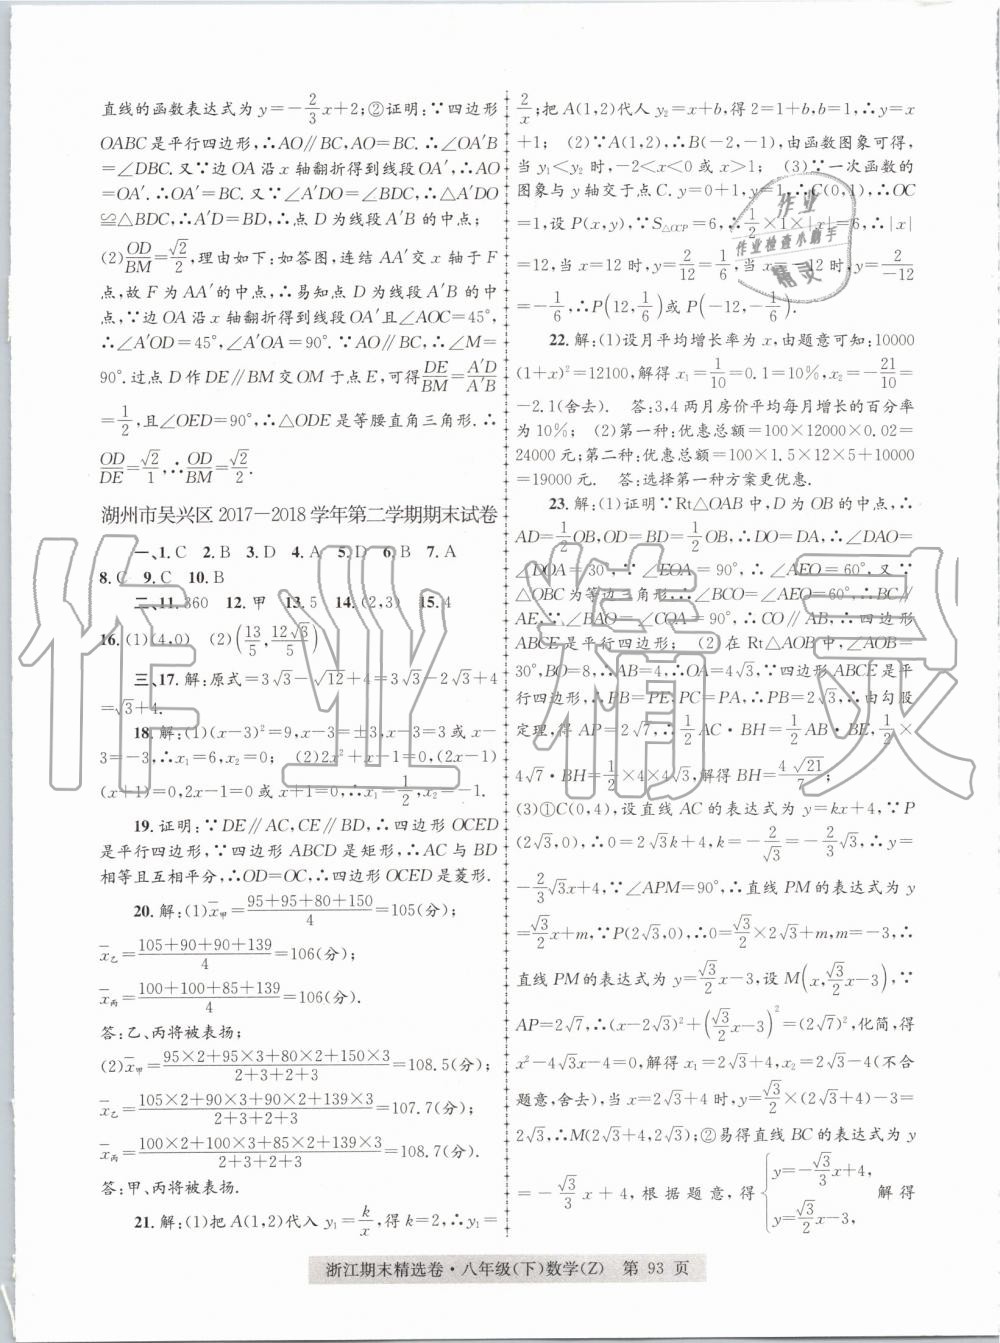 直线的函数表达式为y=-2/3x+2;②证明:∵四边形
OABC是平行四边形,∴AO∥BC,∴AO∥BC.∴∠OA′B
=∠DBC.又∵边OA沿x轴翻折得到线段OA′,∴AO
=OA′.∴OA′=BC.又∵∠A′DO=∠BDC,∴△A′DO
≌△BDC,∴A′D=BD,∴点D为线段A′B的中点;
(2)OD/BM=√2/2,理由如下:如答图,连结AA′交x轴于F
点,故F为AA′的中点,∴易知点D为线段A′B的中
点,∵边OA沿x轴翻折得到线段OA′且∠AOC=45°,
∴∠A′OD=45°,∠AOA′=90°.∵AO∥BC,∴∠M=
90°.过点D作DE∥BM交OM于点E,可得DE/BM=A′D/A′B
=1/2,且∠OED=90°,∴△ODE是等腰直角三角形.∴
OD/DE=√2/1,∴OD/BM=√2/2.
湖州市吴兴区2017—2018学年第二学期期末试卷
一、1.C 2.B 3.D 4.A 5.D 6.B 7.A
8.C 9.C 10.B
二、11.360 12.甲 13.5 14.(2,3) 15.4
16.(1)(4,0) (2)(13/5,12√3/5)
三、17.解:原式=3√3-√12+4=3√3-2√3+4
=√3+4.
18.解:(1)(x-3)²=9,x-3=±3,x-3=3或x-
3=-3,∴x₁=6,x₂=0; (2)2x²+x-1=0,(2x-1)
(x+1)=0,2x-1=0或x+1=0,∴x₁=1/2,x₂=-1.
19.证明:∵DE∥AC,CE∥BD,∴四边形OCED
是平行四边形,∵四边形ABCD是矩形,∴AC与BD
相等且互相平分,∴OD=OC,∴四边形OCED是菱形.
20.解:(1)x̄甲=(95+95+80+150)/4=105(分);
x̄乙=(105+90+90+139)/4=106(分);
x̄丙=(100+100+85+139)/4=106(分).
答:乙、丙将被表扬;
(2)x̄甲=(95×2+95×3+80×2+150×3)/(2+3+2+3)=108.5(分);
x̄乙=(105×2+90×3+90×2+139×3)/(2+3+2+3)=107.7(分);
x̄丙=(100×2+100×3+85×2+139×3)/(2+3+2+3)=108.7(分).
答:甲、丙将被表扬.
21.解:(1)把A(1,2)代入y₁=k/x,得k=2,∴y₁=
2/x;把A(1,2)代人y₂=x+b,得2=1+b,b=1,∴y=x
+1; (2)∵A(1,2),∴B(-2,-1),由函数图象可得,
当y₁<y₂时,-2<x<0或x>1; (3)∵一次函数的
图象与y轴交于点C.y=0+1,y=1,∴C(0,1),∴OC
=1,设P(x,y),∵S△OCP=6,∴1/2×1×|x|=6,∴|x|
=12,当x=12时,y=2/12=1/6,当x=-12时,y=2/-12
=-1/6,∴P(12,1/6)或P(-12,-1/6).
22.解:(1)设月平均增长率为x,由题意可知:10000
(1+x)²=12100,解得x₁=1/10=0.1=10%,x₂=-21/10=
-2.1(舍去). 答:3,4两月房价平均每月增长的百分率
为10%; (2)第一种:优惠总额=100×12000×0.02=
24000元;第二种:优惠总额=100×1.5×12×5+10000
=19000元. 答:选择第一种方案更优惠.
23.解:(1)证明∵Rt△OAB中,D为OB的中点,∴
AD=1/2OB,OD=BD=1/2OB,∴DO=DA,∴∠DAO=
∠DOA=30°,∵∠EOA=90°,∴∠AEO=60°,又∵
△OBC为等边三角形,∴∠BCO=∠AEO=60°,∴BC∥
AE.∵∠BAO=∠COA=90°,∴CO∥AB,∴四边形
ABCE是平行四边形; (2)在Rt△AOB中,∠AOB=
30°,BO=8,∴AB=4,∴OA=4√3,∵四边形ABCE是平
行四边形,∴PB=PE,PC=PA,∴PB=2√3,∴由勾股
定理,得AP=2√7,∴1/2AC·BH=1/2AB·BE,1/2×
4√7·BH=1/2×4×4√3,解得BH=4√21/7;
(3)①C(0,4),设直线AC的表达式为y=kx+4,∵P
(2√3,0),∴0=2√3k+4,k=-2/√3=-2/3√3,∴y=
-2/3√3x+4,∵∠APM=90°,∴直线PM的表达式为y
=√3/2x+m,∵P(2√3,0),∴0=√3/2×2√3+m,m=-3,∴
直线PM的表达式为y=√3/2x-3,设M(x,√3/2x-3),∵
AP=2√7,∴(x-2√3)²+(√3/2x-3)²=(2√7)²,化简,得
x²-4√3x-4=0,解得x₁=2√3+4,x₂=2√3-4(不合
题意,舍去),当x=2√3+4时,y=√3/2×(2√3+4)-3=
2√3,∴M(2√3+4,2√3);②易得直线BC的表达式为y
=-√3/3x+4,根据题意,得{y=-√3/3x+4, y=√3/2x-3, 解得
浙江期末精选卷·八年级(下)数学(Z) 第 93 页
作业精灵
作业
作业检查小助手
精灵